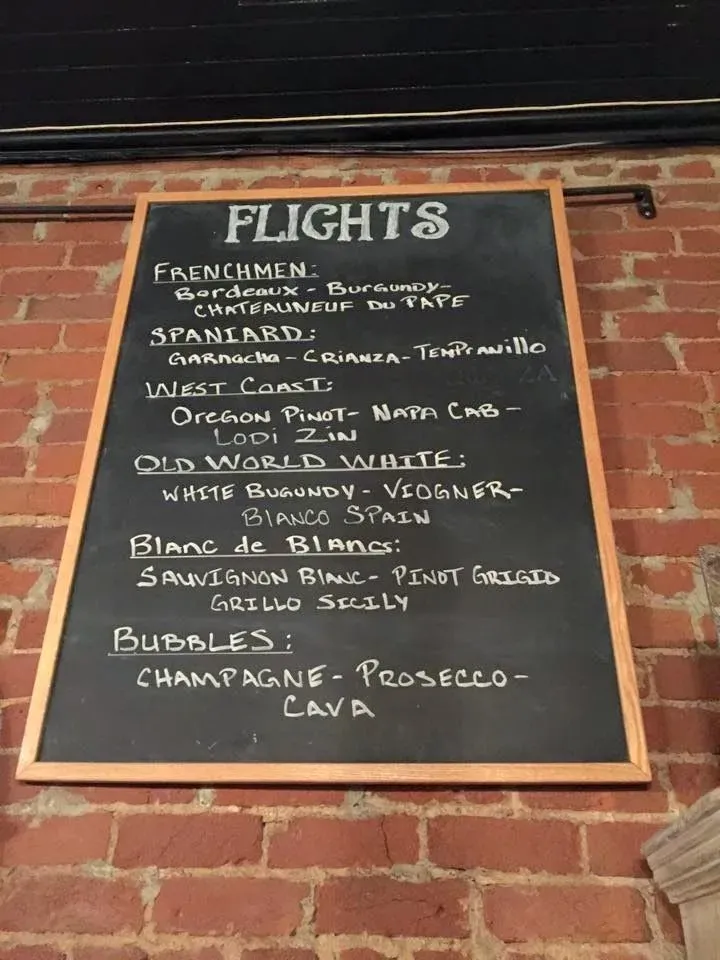 FLIGHTS
FRENCHMEN:
Bordeaux - Burgundy-
CHATEAUNEUF DU PAPE
SPANIARD:
GARNACHA - CRIANZA - TEMPrANillo
WEST COAST:
OREGON PINOT- NAPA CAB -
LODI ZIN
OLD WORLD WHITE:
WHITE BUGUNDY - VIOGNER-
BLANCO SPAIN
Blanc de Blancs:
SAUVIGNON BLANC- PINOT GRIGIO
GRILLO SICILY
BUBBLES:
CHAMPAGNE - PROSECCO -
CAVA